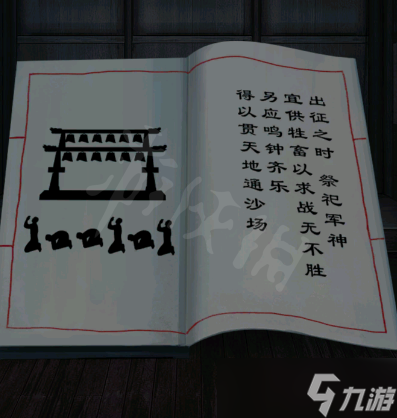 出征之时 祭祀军神
宜供牲畜以求战无不胜
另应鸣钟齐乐
得以贯天地通沙场
九游